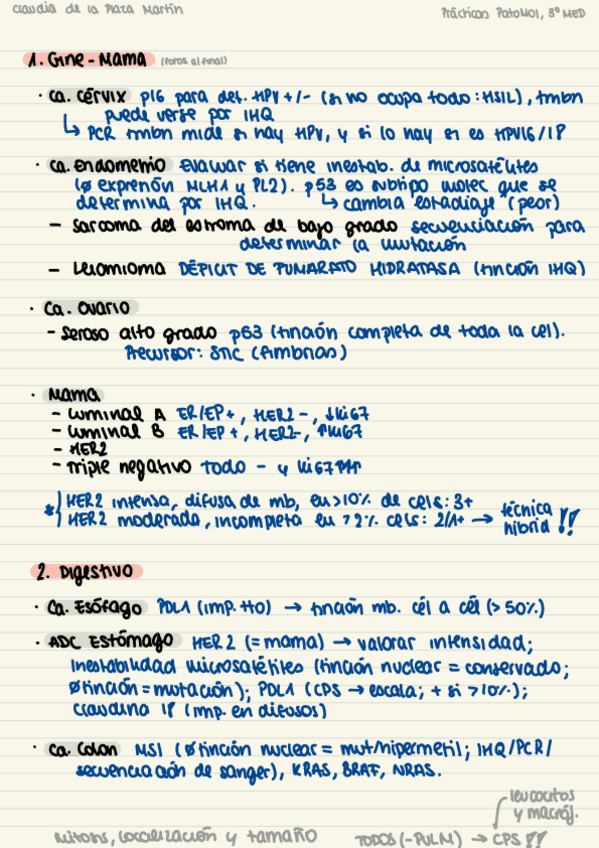 Claudia de la Plaza Martín
Prácticas PatoMol, 3º MED
1. Gine - Mama (fotos al final)
· Ca. Cérvix p16 para det. HPV +/- (si no ocupa todo: HSIL), tmbn
puede verse por IHQ
↳ PCR tmbn mide si hay HPV, y si lo hay si es HPV16/18
· Ca. Endometrio Evaluar si tiene inestab. de microsatélites
(ø expresión MLH1 y PL2). p53 es subtipo molec que se
determina por IHQ. ↳ cambia estadiaje (peor)
- Sarcoma del estroma de bajo grado secuenciación para
determinar la mutación
- Leiomioma DÉFICIT DE FUMARATO HIDRATASA (tinción IHQ)
· Ca. Ovario
- Seroso alto grado p53 (tinción completa de toda la cel).
Precursor: STIC (fimbrias)
· Mama
- Luminal A ER/EP+, HER2-, ↓ki67
- Luminal B ER/EP+, HER2-, ↑ki67
- HER2
- Triple negativo todo - y ki67↑↑↑
* HER2 intensa, difusa de mb, en >10% de cels: 3+
HER2 moderada, incompleta en >2% cels: 2/1+ → técnica
híbrid !!
2. Digestivo
· Ca. Esófago PDL1 (imp. tto) → tinción mb. cél a cél (>50%)
· ADC Estómago HER2 (= mama) → valorar intensidad;
Inestabilidad microsatélites (tinción nuclear = conservado;
ø tinción = mutación); PDL1 (CPS → escala; + si >10%);
claudina 18 (imp. en difusos)
· Ca. Colon MSI (ø tinción nuclear = mut/hipermetil; IHQ/PCR/
secuenciación de sanger), KRAS, BRAF, NRAS.
leucocitos
y macróf.
mitosis, localización y tamaño
TODOS (-PULM) → CPS !!